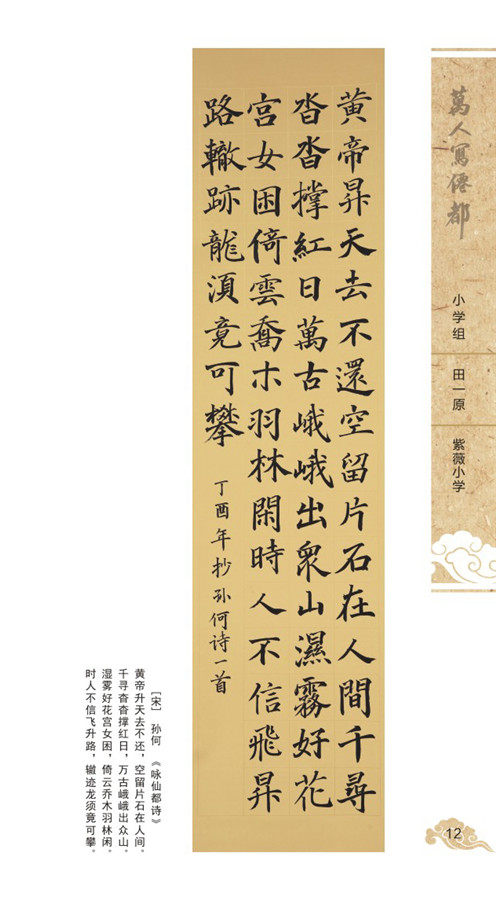 萬人寫僊都
小学组
田一原
紫薇小学
黄帝昇天去不還空留片石在人間千尋
沓沓撑紅日萬古峨峨出衆山濕霧好花
宫女困倚雲喬木羽林閑時人不信飛昇
路轍跡龍湏竟可攀
丁酉年抄孙何诗一首
[宋] 孙何 《咏仙都诗》
黄帝升天去不还，空留片石在人间。
千寻杳杳撑红日，万古峨峨出众山。
湿雾好花宫女困，倚云乔木羽林闲。
时人不信飞升路，辙迹龙须竟可攀。
12